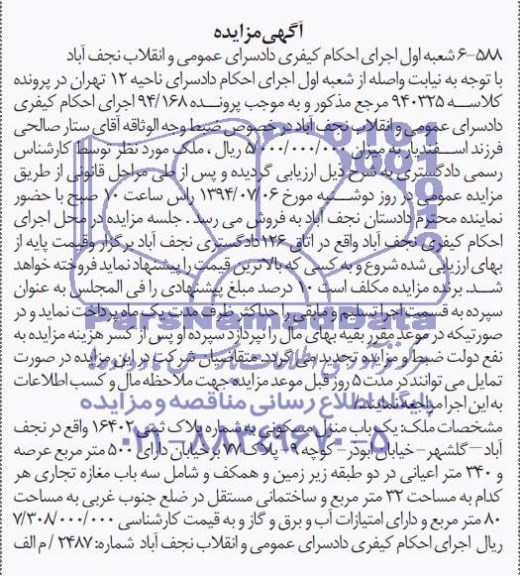 آگهی مزایده
۶-۵۸۸ شعبه اول اجرای احکام کیفری دادسرای عمومی و انقلاب نجف آباد
با توجه به نیابت واصله از شعبه اول اجرای احکام دادسرای ناحیه ۱۲ تهران در پرونده
کلاسه ۹۴۰۳۲۵ مرجع مذکور و به موجب پرونده ۹۴/۱۶۸ اجرای احکام کیفری
دادسرای عمومی و انقلاب نجف آباد در خصوص ضبط وجه الوثاقه آقای ستار صالحی
فرزند اسفندیار به میزان ریال ، ملک مورد نظر توسط کارشناس
رسمی دادگستری به شرح ذیل ارزیابی گردیده و پس از طی مراحل قانونی از طریق
مزایده عمومی در روز دوشنبه مورخ ۱۳۹۴/۰۷/۰۶ راس ساعت ۱۰ صبح با حضور
نماینده محترم دادستان نجف آباد به فروش می رسد . جلسه مزایده در محل اجرای
احکام کیفری نجف آباد واقع در اتاق ۱۲۶ دادگستری نجف آباد برگزار وقیمت پایه از
بهای ارزیابی شده شروع و به کسی که بالاترین قیمت را پیشنهاد نماید فروخته خواهد
شد. برنده مزایده مکلف است ۱۰ درصد مبلغ پیشنهادی را فی المجلس به عنوان
سپرده به قسمت اجرا تسلیم و مابقی را حداکثر ظرف مدت یک ماه پرداخت نماید و در
صورتیکه در موعد مقرر بقیه بهای مال را نپردازد سپرده او پس از کسر هزینه مزایده به
نفع دولت ضبط و مزایده تجدید می گردد. متقاضیان شرکت در این مزایده در صورت
تمایل می توانند در مدت ۵ روز قبل موعد مزایده جهت ملاحظه مال و کسب اطلاعات
به این اجرا مراجعه نمایند.
مشخصات ملک: یک باب منزل مسکونی به شماره پلاک ثبتی ۱۶۴۰۲ واقع در نجف
آباد – گلشهر – خیابان ابوذر – کوچه ۱۹ پلاک ۷۷ برخیابان دارای ۵۰۰ متر مربع عرصه
و ۳۴۰ متر اعیانی در دو طبقه زیر زمین و همکف و شامل سه باب مغازه تجاری هر
کدام به مساحت ۳۲ متر مربع و ساختمانی مستقل در ضلع جنوب غربی به مساحت
۸۰ متر مربع و دارای امتیازات آب و برق و گاز و به قیمت کارشناسی ۷/۳۰۸/۰۰۰/۰۰۰
ریال اجرای احکام کیفری دادسرای عمومی و انقلاب نجف آباد شماره: ۲۴۸۷ / م الف
ParsNamadData
پایگاه اطلاع رسانی مناقصه و مزایده
۰۲۱-۸۸۳۴۹۶۷۰-۵